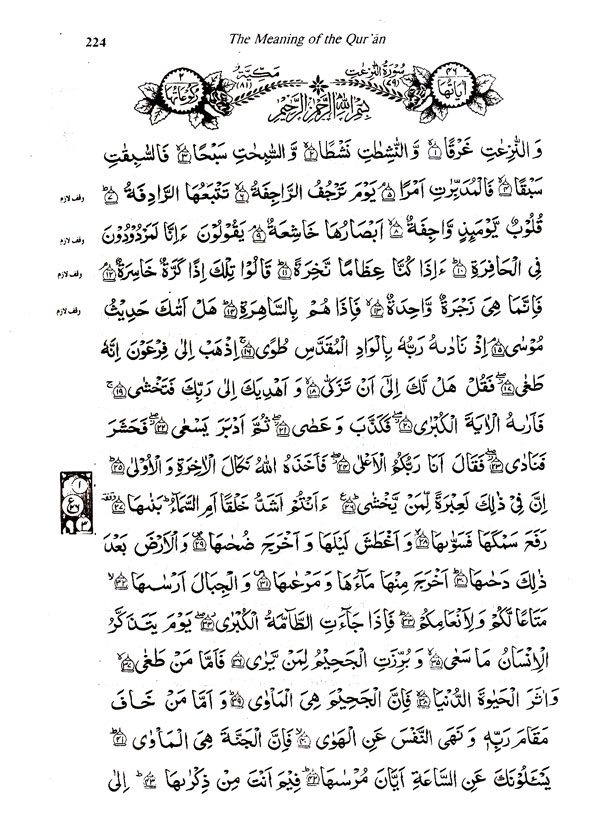 224
The Meaning of the Qur'ān
اٰيَاتُهَا ٤٦
سُوْرَةُ النّٰزِعٰتِ (٧٩)
مَكِّيَّةٌ (٨١)
رُكُوْعَاتُهَا ٢
بِسْمِ اللّٰهِ الرَّحْمٰنِ الرَّحِيْمِ
وَ النّٰزِعٰتِ غَرْقًا ۙ﴿١﴾ وَّ النّٰشِطٰتِ نَشْطًا ۙ﴿٢﴾ وَّ السّٰبِحٰتِ سَبْحًا ۙ﴿٣﴾ فَالسّٰبِقٰتِ
سَبْقًا ۙ﴿٤﴾ فَالْمُدَبِّرٰتِ اَمْرًا ۘ﴿٥﴾ يَوْمَ تَرْجُفُ الرَّاجِفَةُ ۙ﴿٦﴾ تَتْبَعُهَا الرَّادِفَةُ ؕ﴿٧﴾ وقف لازم
قُلُوْبٌ يَّوْمَىِٕذٍ وَّاجِفَةٌ ۙ﴿٨﴾ اَبْصَارُهَا خَاشِعَةٌ ۘ﴿٩﴾ يَقُوْلُوْنَ ءَاِنَّا لَمَرْدُوْدُوْنَ وقف لازم
فِى الْحَافِرَةِ ؕ﴿١٠﴾ ءَاِذَا كُنَّا عِظَامًا نَّخِرَةً ؕ﴿١١﴾ قَالُوْا تِلْكَ اِذًا كَرَّةٌ خَاسِرَةٌ ۘ﴿١٢﴾ وقف لازم
فَاِنَّمَا هِىَ زَجْرَةٌ وَّاحِدَةٌ ۙ﴿١٣﴾ فَاِذَا هُمْ بِالسَّاهِرَةِ ؕ﴿١٤﴾ هَلْ اَتٰىكَ حَدِيْثُ وقف لازم
مُوْسٰى ۘ﴿١٥﴾ اِذْ نَادٰىهُ رَبُّهٗ بِالْوَادِ الْمُقَدَّسِ طُوًى ۚ﴿١٦﴾ اِذْهَبْ اِلٰى فِرْعَوْنَ اِنَّهٗ
طَغٰى ۖ﴿١٧﴾ فَقُلْ هَلْ لَّكَ اِلٰٓى اَنْ تَزَكّٰى ۙ﴿١٨﴾ وَ اَهْدِيَكَ اِلٰى رَبِّكَ فَتَخْشٰى ۚ﴿١٩﴾
فَاَرٰىهُ الْاٰيَةَ الْكُبْرٰى ۖ﴿٢٠﴾ فَكَذَّبَ وَ عَصٰى ۖ﴿٢١﴾ ثُمَّ اَدْبَرَ يَسْعٰى ۖ﴿٢٢﴾ فَحَشَرَ
فَنَادٰى ۖ﴿٢٣﴾ فَقَالَ اَنَا رَبُّكُمُ الْاَعْلٰى ۖ﴿٢٤﴾ فَاَخَذَهُ اللّٰهُ نَكَالَ الْاٰخِرَةِ وَ الْاُوْلٰى ؕ﴿٢٥﴾
اِنَّ فِىْ ذٰلِكَ لَعِبْرَةً لِّمَنْ يَّخْشٰى ؕ﴿٢٦﴾ ءَاَنْتُمْ اَشَدُّ خَلْقًا اَمِ السَّمَآءُ ؕ بَنٰىهَا ۥ﴿٢٧﴾
رَفَعَ سَمْكَهَا فَسَوّٰىهَا ۙ﴿٢٨﴾ وَ اَغْطَشَ لَيْلَهَا وَ اَخْرَجَ ضُحٰىهَا ۪﴿٢٩﴾ وَ الْاَرْضَ بَعْدَ
ذٰلِكَ دَحٰىهَا ؕ﴿٣٠﴾ اَخْرَجَ مِنْهَا مَآءَهَا وَ مَرْعٰىهَا ۪﴿٣١﴾ وَ الْجِبَالَ اَرْسٰىهَا ۙ﴿٣٢﴾
مَتَاعًا لَّكُمْ وَ لِاَنْعَامِكُمْ ؕ﴿٣٣﴾ فَاِذَا جَآءَتِ الطَّآمَّةُ الْكُبْرٰى ۖ﴿٣٤﴾ يَوْمَ يَتَذَكَّرُ
الْاِنْسَانُ مَا سَعٰى ۙ﴿٣٥﴾ وَ بُرِّزَتِ الْجَحِيْمُ لِمَنْ يَّرٰى ﴿٣٦﴾ فَاَمَّا مَنْ طَغٰى ۙ﴿٣٧﴾
وَ اٰثَرَ الْحَيٰوةَ الدُّنْيَا ۙ﴿٣٨﴾ فَاِنَّ الْجَحِيْمَ هِىَ الْمَاْوٰى ؕ﴿٣٩﴾ وَ اَمَّا مَنْ خَافَ
مَقَامَ رَبِّهٖ وَ نَهَى النَّفْسَ عَنِ الْهَوٰى ۙ﴿٤٠﴾ فَاِنَّ الْجَنَّةَ هِىَ الْمَاْوٰى ؕ﴿٤١﴾
يَسْـَٔلُوْنَكَ عَنِ السَّاعَةِ اَيَّانَ مُرْسٰىهَا ؕ﴿٤٢﴾ فِيْمَ اَنْتَ مِنْ ذِكْرٰىهَا ؕ﴿٤٣﴾ اِلٰى